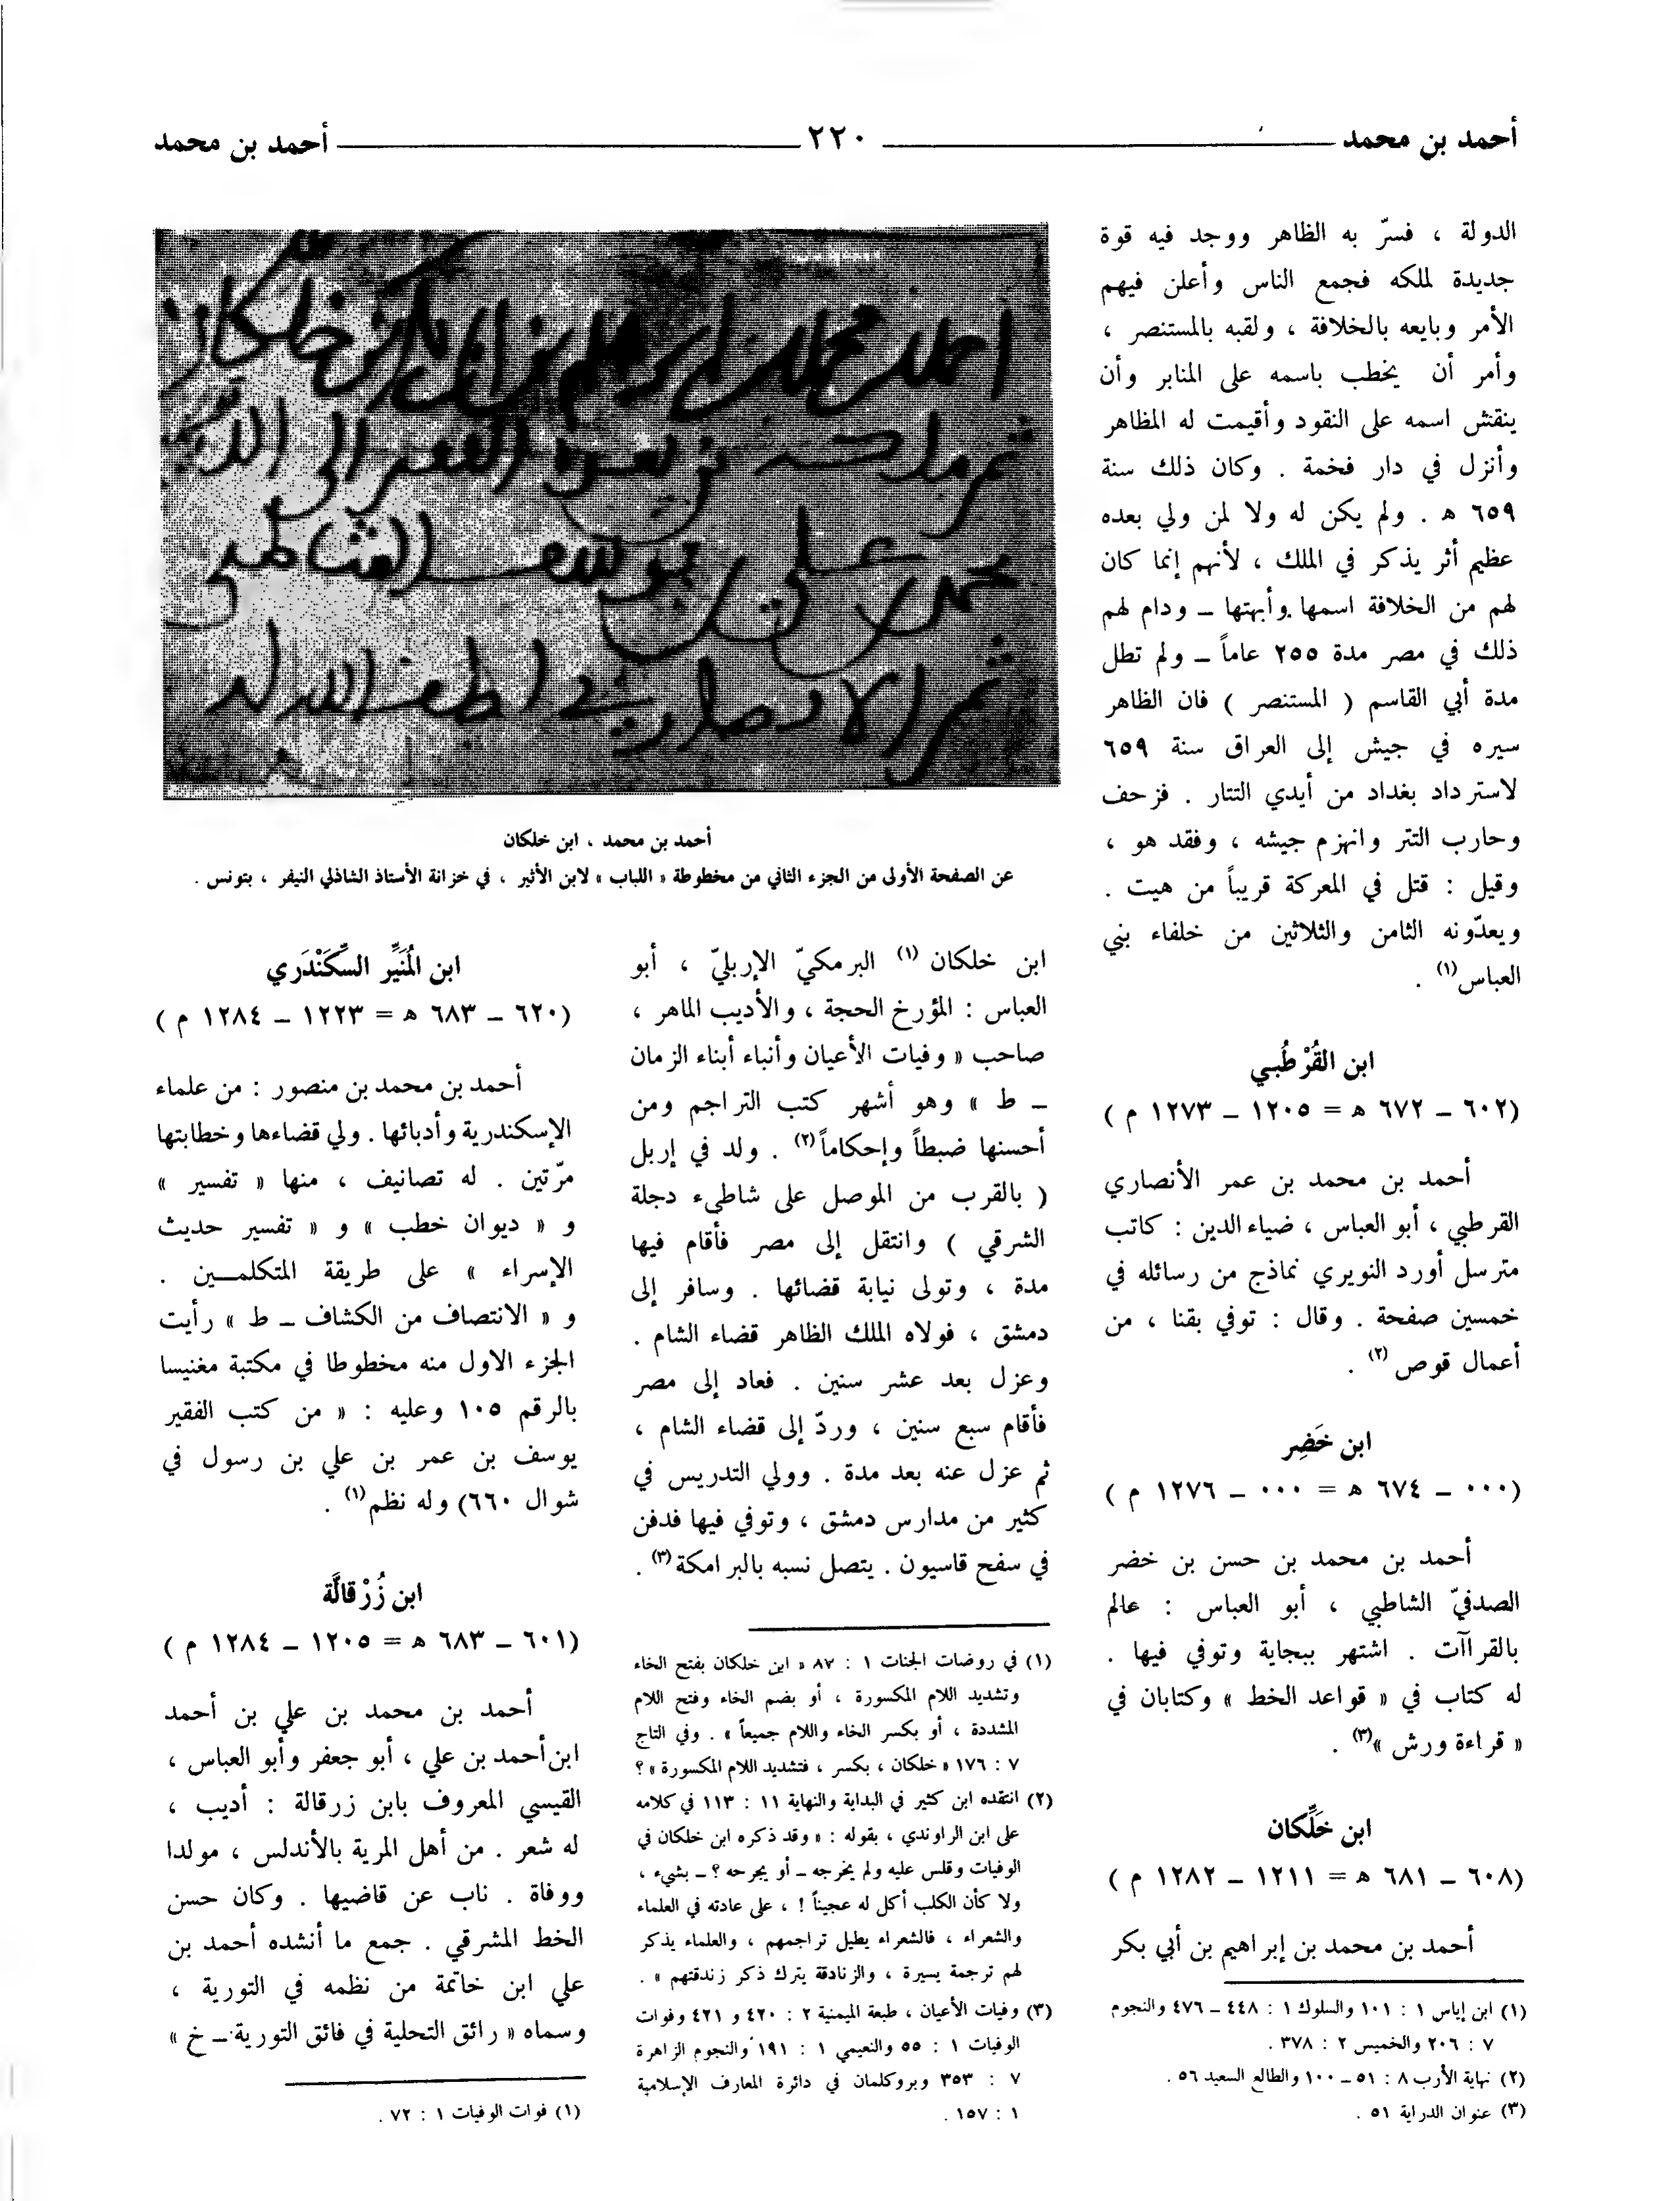 أحمد بن محمد ٢٢٠ أحمد بن محمد
الدولة ، فسرّ به الظاهر ووجد فيه قوة
جديدة لملكه فجمع الناس وأعلن فيهم
الأمر وبايعه بالخلافة ، ولقبه بالمستنصر ،
وأمر أن يخطب باسمه على المنابر وأن
ينقش اسمه على النقود وأقيمت له المظاهر
وأنزل في دار فخمة . وكان ذلك سنة
٦٥٩ ه . ولم يكن له ولا لمن ولي بعده
عظيم أثر يذكر في الملك ، لأنهم إنما كان
لهم من الخلافة اسمها وأبهتها – ودام لهم
ذلك في مصر مدة ٢٥٥ عاماً – ولم تطل
مدة أبي القاسم ( المستنصر ) فان الظاهر
سيره في جيش إلى العراق سنة ٦٥٩
لاسترداد بغداد من أيدي التتار . فزحف
وحارب التتر وانهزم جيشه ، وفقد هو ،
وقيل : قتل في المعركة قريباً من هيت .
ويعدّونه الثامن والثلاثين من خلفاء بني
العباس(١) .
ابن القُرْطُبي
(٦٠٢ – ٦٧٢ ه = ١٢٠٥ – ١٢٧٣ م )
أحمد بن محمد بن عمر الأنصاري
القرطبي ، أبو العباس ، ضياء الدين : كاتب
مترسل أورد النويري نماذج من رسائله في
خمسين صفحة . وقال : توفي بقنا ، من
أعمال قوص (٢) .
ابن خَضِر
(٠٠٠ – ٦٧٤ ه = ٠٠٠ – ١٢٧٦ م )
أحمد بن محمد بن حسن بن خضر
الصدفيّ الشاطبي ، أبو العباس : عالم
بالقراآت . اشتهر ببجاية وتوفي فيها .
له كتاب في « قواعد الخط » وكتابان في
« قراءة ورش »(٣) .
ابن خَلِّكان
(٦٠٨ – ٦٨١ ه = ١٢١١ – ١٢٨٢ م )
أحمد بن محمد بن إبراهيم بن أبي بكر
(١) ابن إياس ١ : ١٠١ والسلوك ١ : ٤٤٨ – ٤٧٦ والنجوم
٧ : ٢٠٦ والخميس ٢ : ٣٧٨ .
(٢) نهاية الأرب ٨ : ٥١ – ١٠٠ والطالع السعيد ٥٦ .
(٣) عنوان الدراية ٥١ .
أحمد بن محمد ، ابن خلكان
عن الصفحة الأولى من الجزء الثاني من مخطوطة « اللباب » لابن الأثير ، في خزانة الأستاذ الشاذلي النيفر ، بتونس .
ابن خلكان (١) البرمكيّ الإربليّ ، أبو
العباس : المؤرخ الحجة ، والأديب الماهر ،
صاحب « وفيات الأعيان وأنباء أبناء الزمان
– ط » وهو أشهر كتب التراجم ومن
أحسنها ضبطاً وإحكاماً(٢) . ولد في إربل
( بالقرب من الموصل على شاطىء دجلة
الشرقي ) وانتقل إلى مصر فأقام فيها
مدة ، وتولى نيابة قضائها . وسافر إلى
دمشق ، فولاه الملك الظاهر قضاء الشام .
وعزل بعد عشر سنين . فعاد إلى مصر
فأقام سبع سنين ، وردّ إلى قضاء الشام ،
ثم عزل عنه بعد مدة . وولي التدريس في
كثير من مدارس دمشق ، وتوفي فيها فدفن
في سفح قاسيون . يتصل نسبه بالبرامكة(٣) .
(١) في روضات الجنات ١ : ٨٧ « ابن خلكان بفتح الخاء
وتشديد اللام المكسورة ، أو بضم الخاء وفتح اللام
المشددة ، أو بكسر الخاء واللام جميعاً » . وفي التاج
٧ : ١٧٦ « خلكان ، بكسر ، فتشديد اللام المكسورة » ؟
(٢) انتقده ابن كثير في البداية والنهاية ١١ : ١١٣ في كلامه
على ابن الراوندي ، بقوله : « وقد ذكره ابن خلكان في
الوفيات وقلس عليه ولم يخرجه – أو يجرحه ؟ – بشيء ،
ولا كأن الكلب أكل له عجيناً ! ، على عادته في العلماء
والشعراء ، فالشعراء يطيل تراجمهم ، والعلماء يذكر
لهم ترجمة يسيرة ، والزنادقة يترك ذكر زندقتهم » .
(٣) وفيات الأعيان ، طبعة الميمنية ٢ : ٤٢٠ و ٤٢١ وفوات
الوفيات ١ : ٥٥ والنعيمي ١ : ١٩١ والنجوم الزاهرة
٧ : ٣٥٣ وبروكلمان في دائرة المعارف الإسلامية
١ : ١٥٧ .
ابن المُنَيِّر السَّكَنْدَري
(٦٢٠ – ٦٨٣ ه = ١٢٢٣ – ١٢٨٤ م )
أحمد بن محمد بن منصور : من علماء
الإسكندرية وأدبائها . ولي قضاءها وخطابتها
مرّتين . له تصانيف ، منها « تفسير »
و « ديوان خطب » و « تفسير حديث
الإسراء » على طريقة المتكلمـين .
و « الانتصاف من الكشاف – ط » رأيت
الجزء الاول منه مخطوطا في مكتبة مغنيسا
بالرقم ١٠٥ وعليه : « من كتب الفقير
يوسف بن عمر بن علي بن رسول في
شوال ٦٦٠) وله نظم(١) .
ابن زُرْقالَّة
(٦٠١ – ٦٨٣ ه = ١٢٠٥ – ١٢٨٤ م )
أحمد بن محمد بن علي بن أحمد
ابن أحمد بن علي ، أبو جعفر وأبو العباس ،
القيسي المعروف بابن زرقالة : أديب ،
له شعر . من أهل المرية بالأندلس ، مولدا
ووفاة . ناب عن قاضيها . وكان حسن
الخط المشرقي . جمع ما أنشده أحمد بن
علي ابن خاتمة من نظمه في التورية ،
وسماه « رائق التحلية في فائق التورية – خ »
(١) فوات الوفيات ١ : ٧٢ .